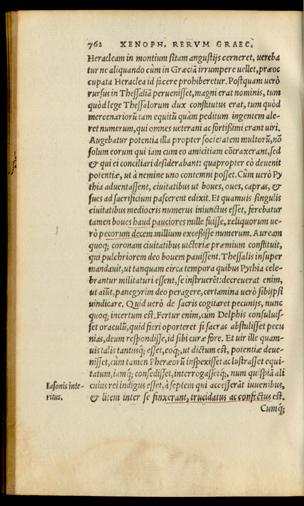 762 XENOPH. RERVM GRAEC.
Heracleam in montium sitam angustijs cerneret, uereba
tur ne aliquando cùm in Græciã irrumpere uellet, præoc
cupata Heraclea id facere prohiberetur. Postquam uerò
rursus in Thessaliã peruenisset, magni erat nominis, tum
quòd lege Thessalorum dux constitutus erat, tum quòd
mercenariorũ tam equitũ quàm peditum ingentem ale-
ret numerum, qui omnes ueterani ac fortißimi erant uiri.
Augebatur potentia illa propter societatem multorũ, nõ
solum eorum qui iam cum eo amicitiam cõtraxerant, sed
& qui ei conciliari desiderabant: quapropter eò deuenit
potentiæ, ut à nemine uno contemni posset. Cùm uerò Py
thia aduentassent, ciuitatibus ut boues, oues, capras, &
sues ad sacrificium pascerent edixit. Et quamuis singulis
ciuitatibus mediocris numerus iniunctus esset, ferebatur
tamen boues haud pauciores mille fuisse, reliquorum ue-
rò pecorum decem millium excessisse numerum. Auream
quoq; coronam ciuitatibus uictoriæ præmium constituit,
qui pulcherrimum deo bouem pauissent. Thessalis insuper
mandauit, ut tanquam circa tempora quibus Pythia cele-
brantur militaturi essent, se instruerẽt: decreuerat enim,
ut aiũt, panegyrim deo peragere, certamina uerò sibiipsi
uindicare. Quid uerò de sacris cogitaret pecunijs, nunc
quoq; incertum est. Fertur enim, cùm Delphis consuluis-
set oraculũ, quid fieri oporteret si sacras abstulisset pecu
nias, deum respondisse, id sibi curæ fore. Et uir ille quam-
uis talis tantusq; esset, eoq;, ut dictum est, potentiæ deue-
nisset, cùm tamen Pheræorũ inspexisset ac lustrasset equi-
tatum, iamq; consedisset, interrogassetq;, num quispiã ali
cuius rei indigus esset, à septem qui accesserãt iuuenibus,
& litem inter se finxerant, trucidatus ac confectus est.
Iasonis inte-
ritus.
Cumq;